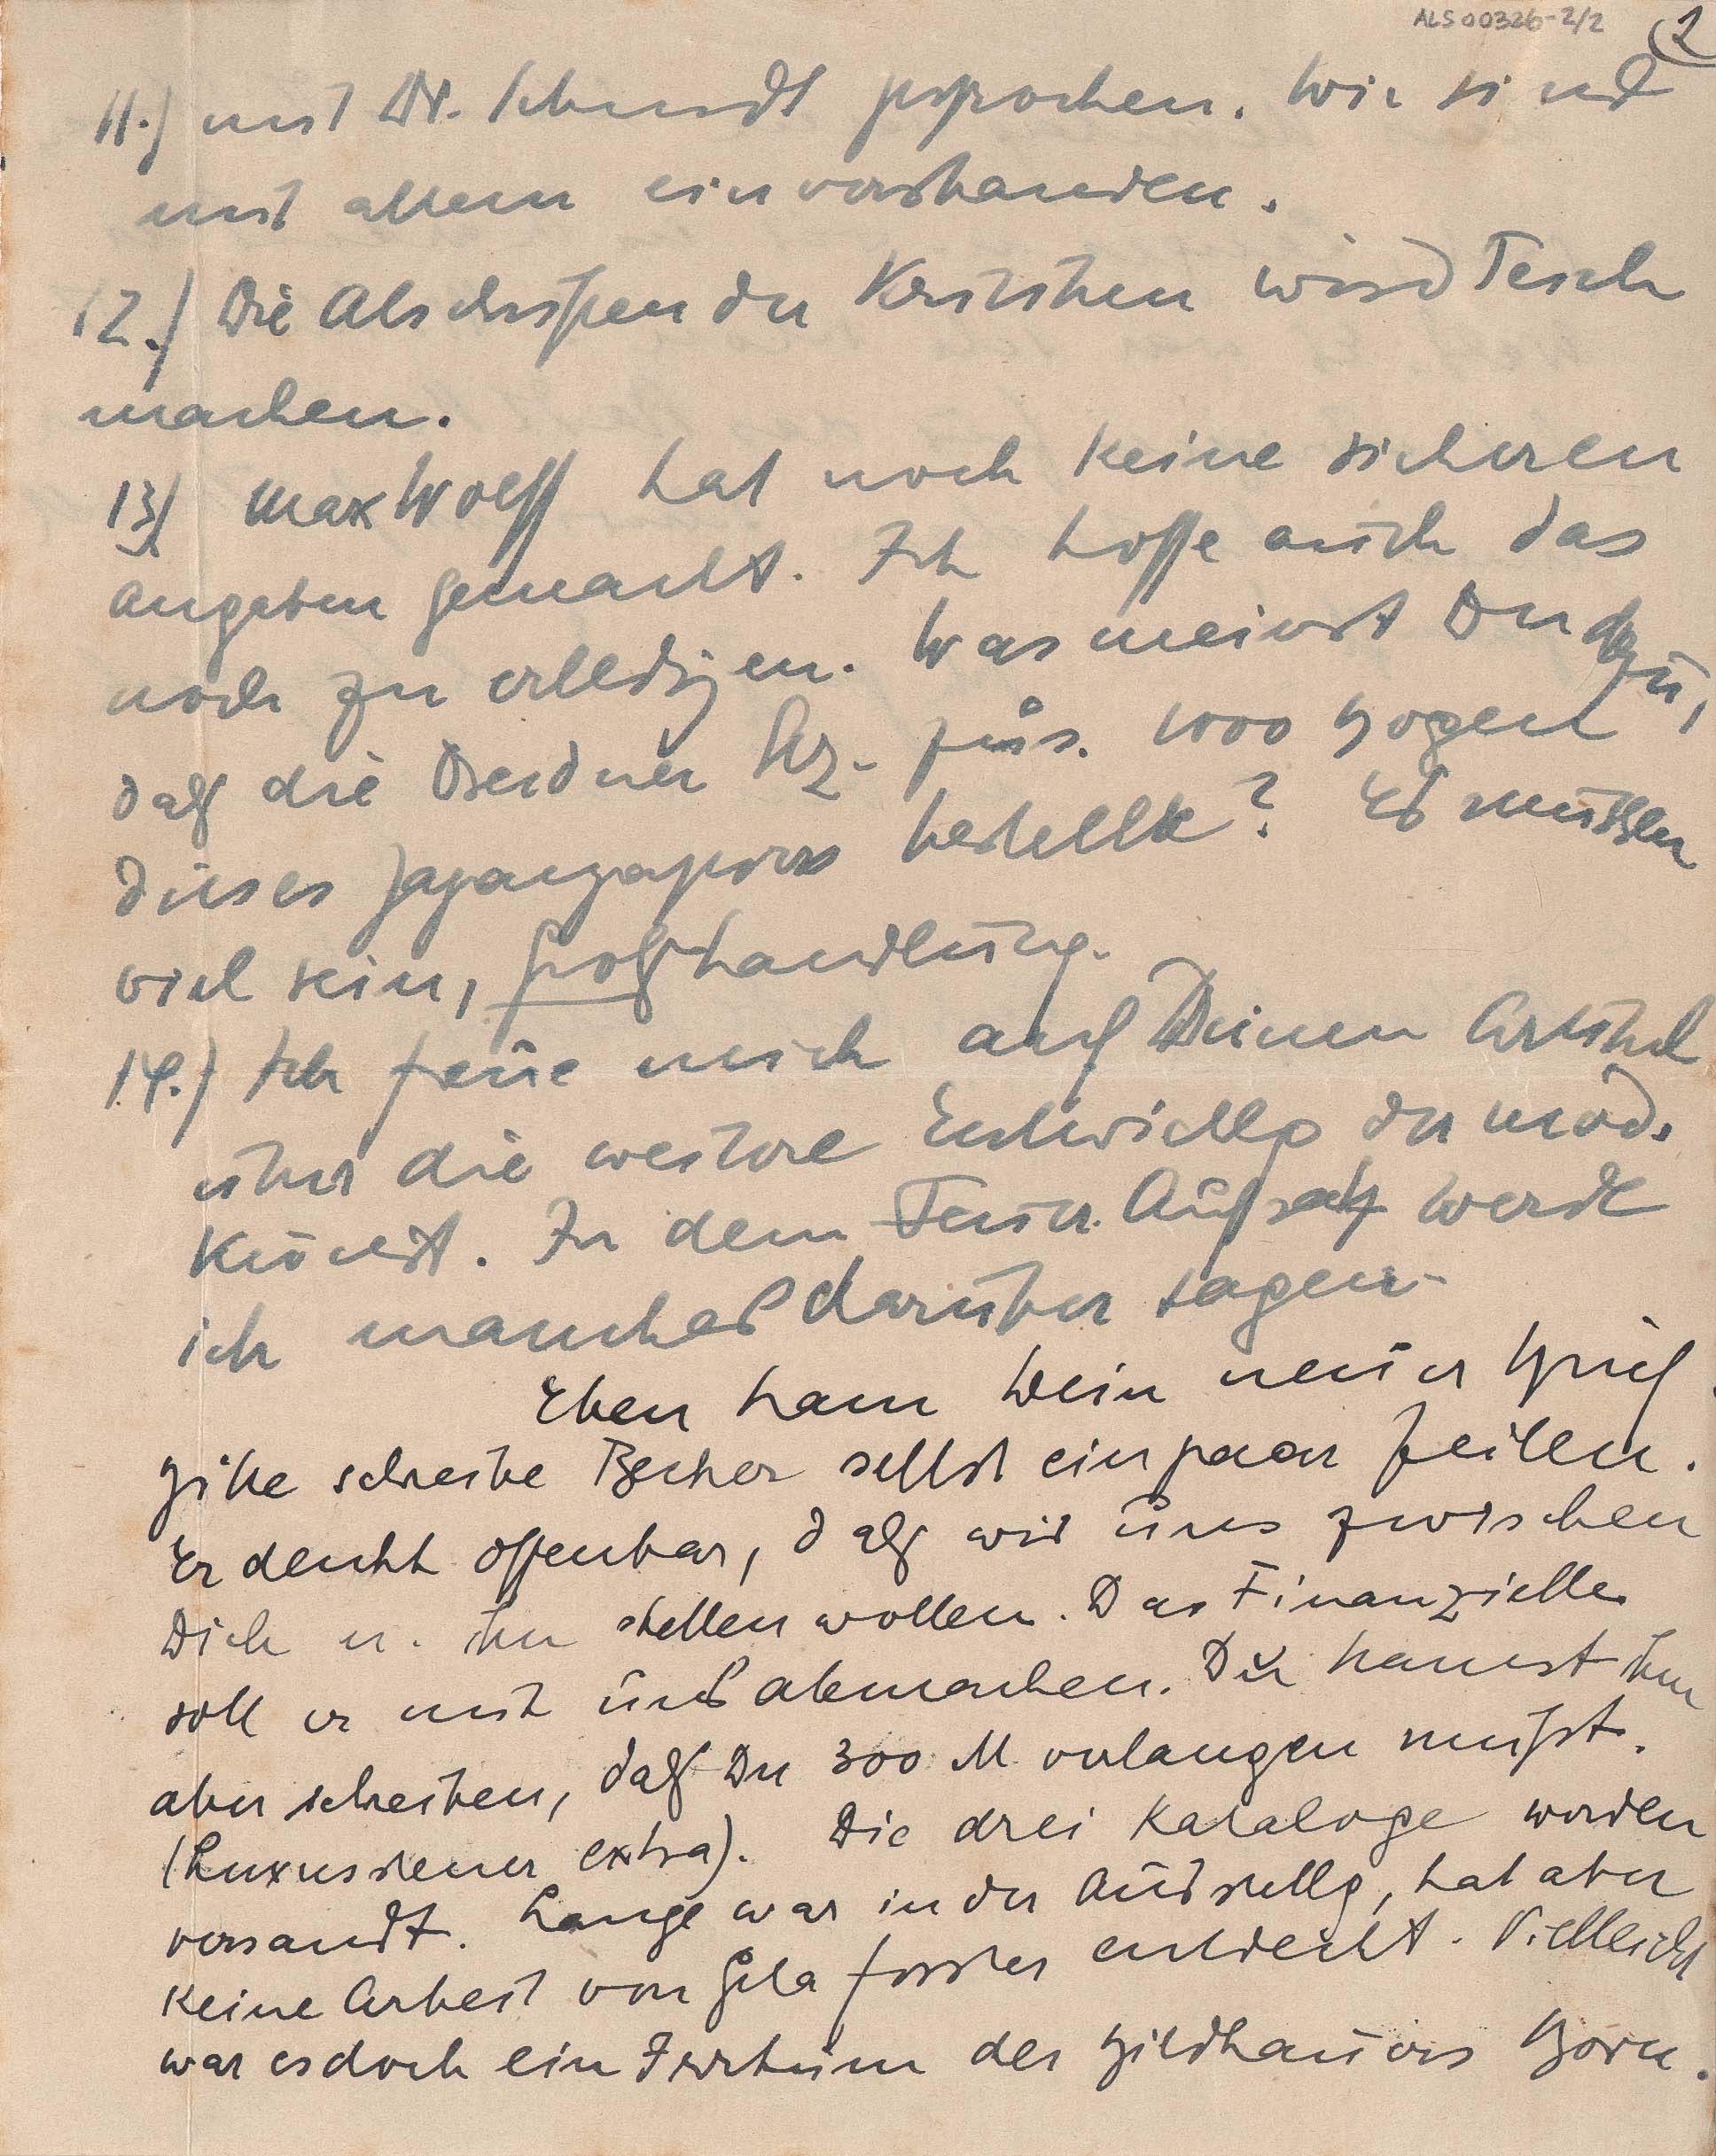 ALS 00326-2/2 2
11.) mit Dr. Schmidt gesprochen. Wir sind
mit allem einverstanden.
12.) Die Abschriften der Kritiken wird Tesch
machen.
13) Max Wolff hat noch keine sicheren
Angaben gemacht. Ich hoffe auch das
noch zu erledigen. Was meinst Du dazu,
daß die Dresdner Sez. zus. 1000 Bogen
dieses Japanpapiers bestellte? Es müßten
viel sein, Großhandlung.
14.) Ich freue mich auf Deinen Artikel
über die weitere Entwicklg der mod.
Kunst. In dem Aufsatz werde
ich manches darüber sagen.
Eben kam Dein neuer Brief.
Bitte schreibe Becker selbst ein paar Zeilen.
Er denkt offenbar, daß wir uns zwischen
Dich u. ihn stellen wollen. Das Finanzielle
soll er mit uns abmachen. Du kannst ihm
aber schreiben, daß Du 300 M verlangen mußt.
(Luxussteuer extra). Die drei Kataloge werden
versandt. Lange war in der Ausstellg, hat aber
keine Arbeit von Gela Forster entdeckt. Vielleicht
war es doch ein Irrtum des Bildhauers Born.